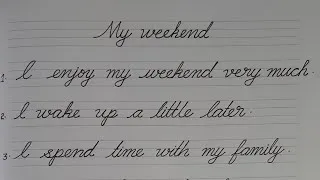 My weekend
1. I enjoy my weekend very much.
2. I wake up a little later.
3. I spend time with my family.